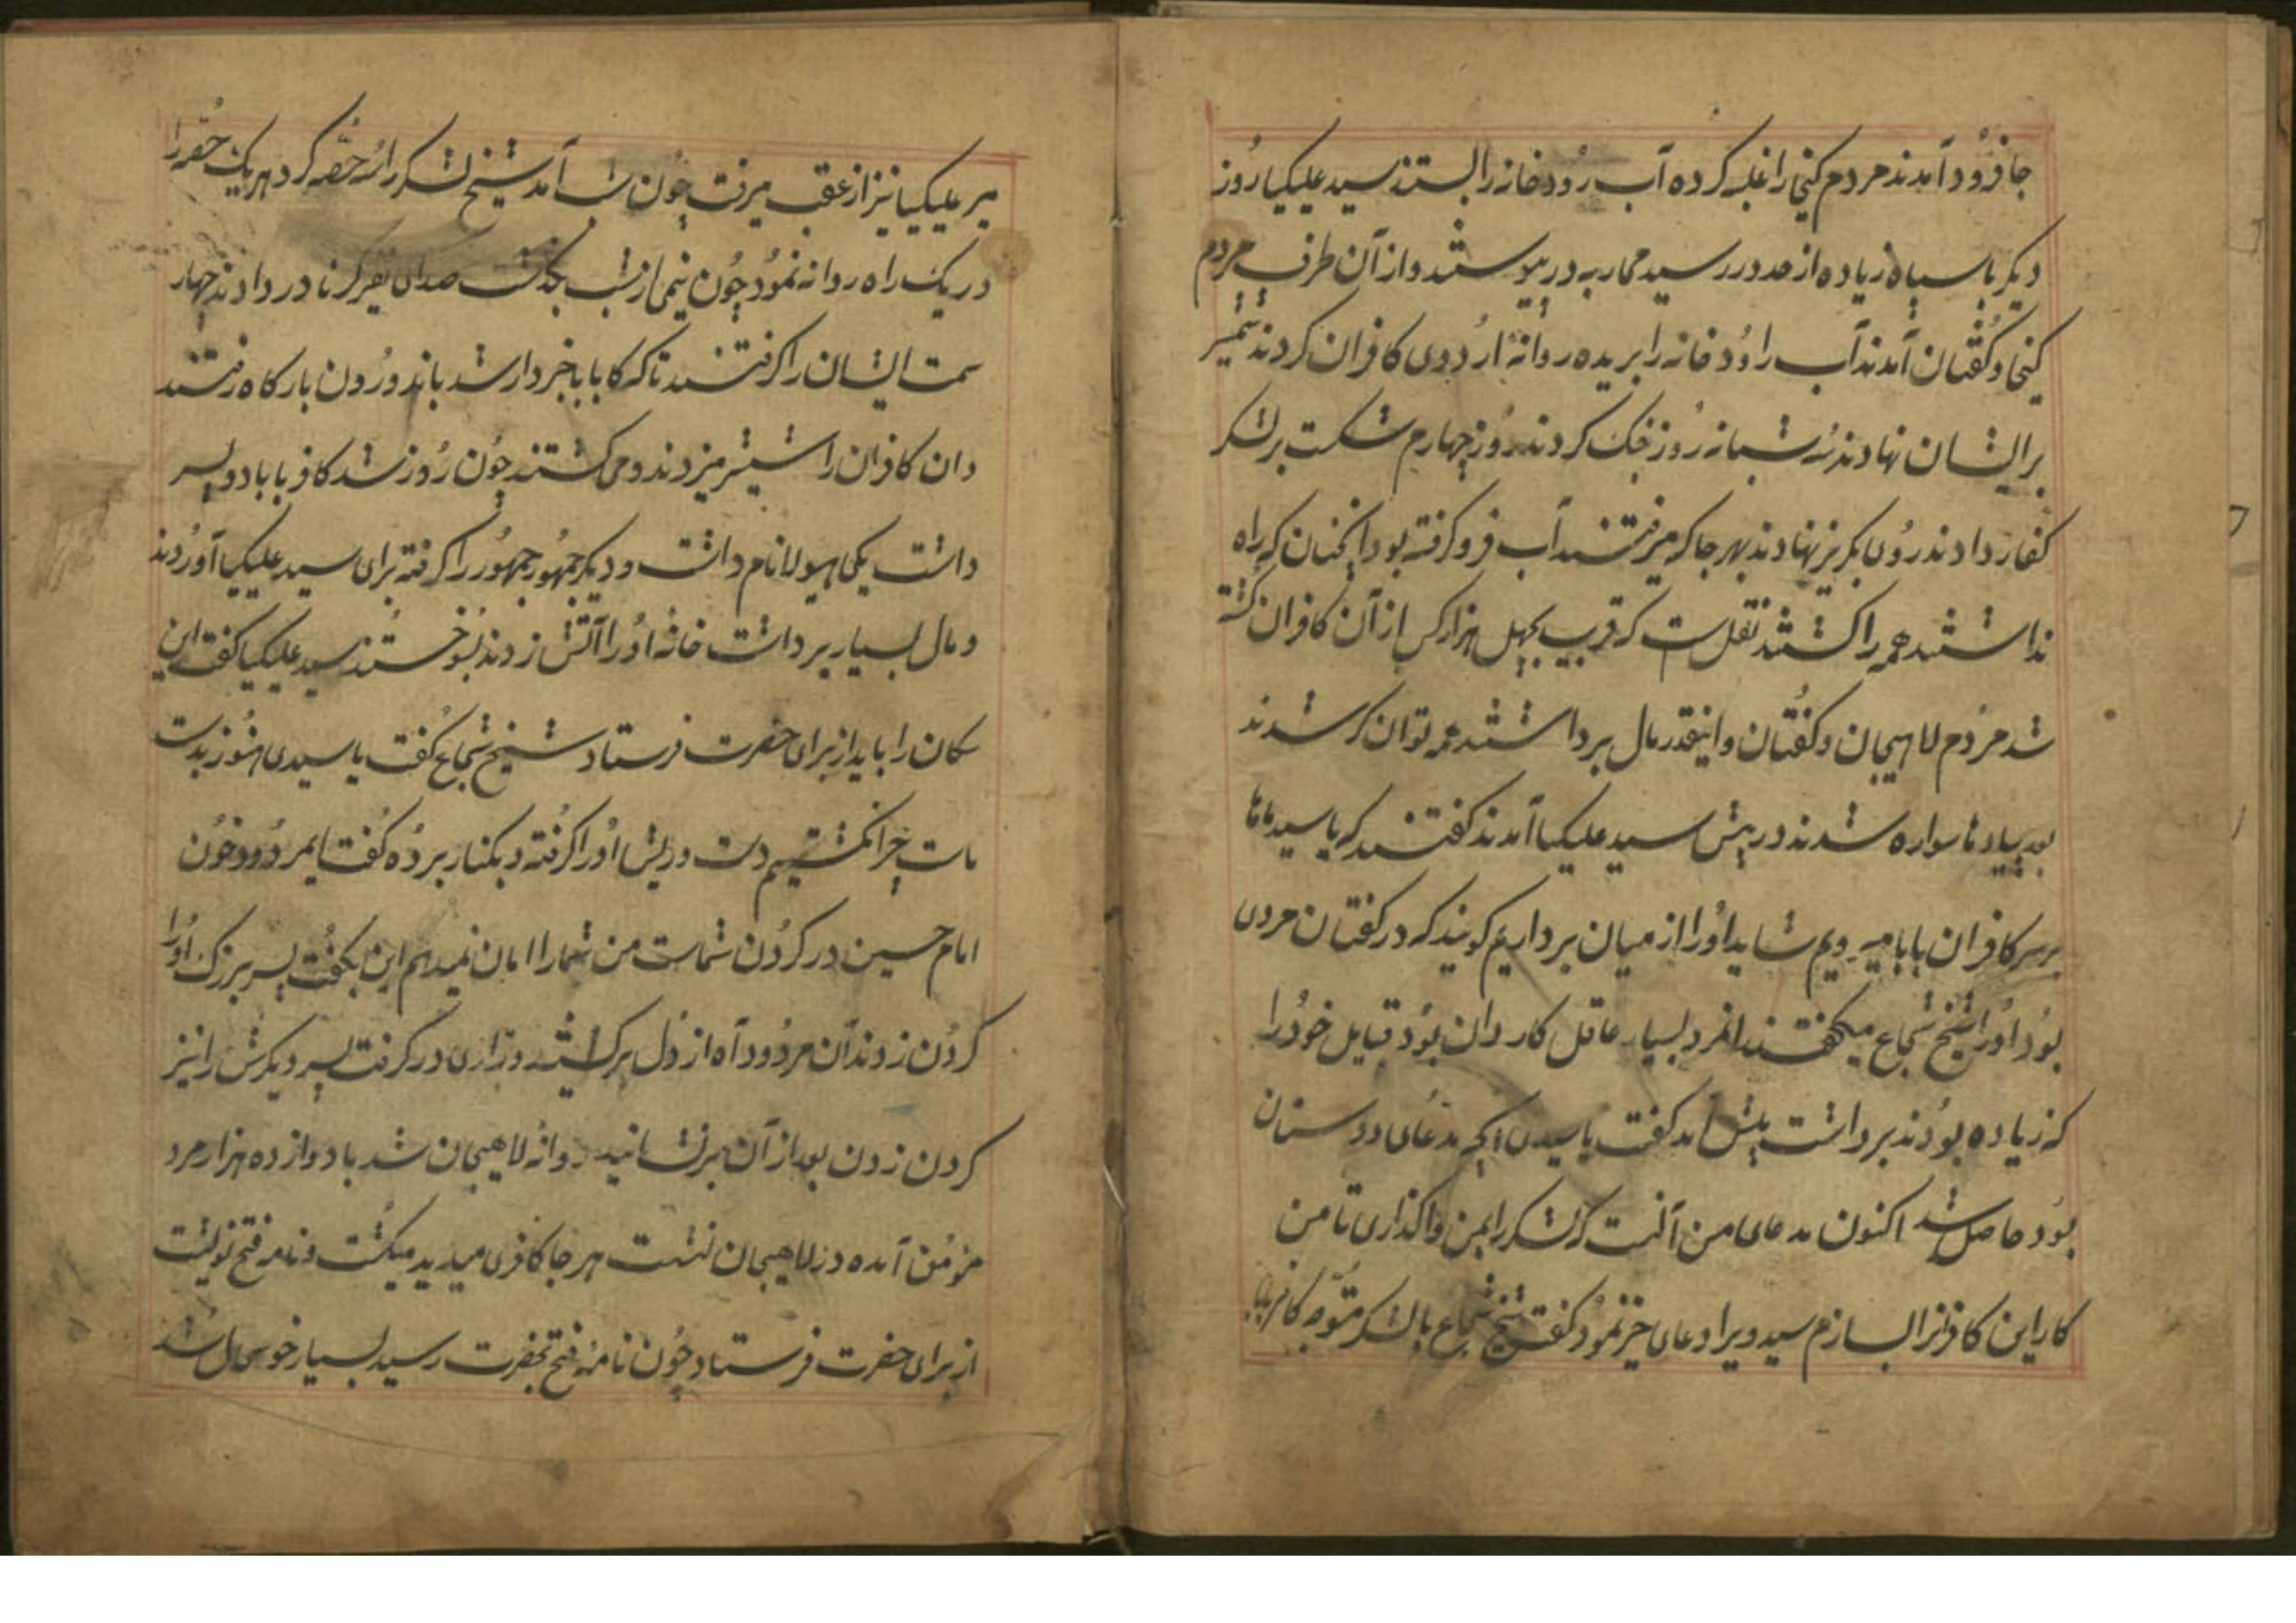 جا فرود آمدند مردم کنجا را غلبه کرده آب رودخانه را بستند سید علیکیا روز
دیکر با سپاه زیاده از حد در رسید محاربه در پیوستند و از آن طرف مردم
کنجا و کفتان آمدند آب راودخانه را بریده روانهٔ اردوی کافران کردند شمشیر
بر ایشان نهادند سه شبانه روز جنک کردند روز چهارم شکست بر لشکر
کفار دادند روی بکریز نهادند بهر جا که میرفتند آب فرو کرفته بود انجنان که راه
نداشتند همه را کشتند نقلست که قریب بچهل هزار کس از آن کافران کشته
شد مردم لاهیجان و کفتان و اینقدر مال برداشتند همه توانکر شدند
بعد پیادها سواره شدند در پیش سید علیکیا آمدند کفتند که یا سید ماها
بر سر کافران بابا میرویم شاید اورا از میان برداریم کویند که در کفتان مردی
بود اورا شیخ شجاع میکفتند انمرد بسیار عاقل کاردان بود قبایل خود را
که زیاده بودند برداشت پیش امد کفت یا سیدی انچه مدعای دوستان
بود حاصل شد اکنون مدعای من آنست که لشکر را بمن واکذاری تا من
کار این کافرانرا بسازم سید ویرا دعای خیر نمود کفت شیخ شجاع با لشکر متوجه کافر بابا
میر علیکیا نیز از عقب میرفت چون شب آمد شیخ لشکر را سه حصّه کرد هر یک حصه را
در یک راه روانه نمود چون نیمی از شب بکذشت صدای نفیر کرنا در دادند چهار
سمت ایشان را کرفتند تا که کا بابا خبردار شد باندورون بارکاه رفتند
دان کافران را شمشیر میزدند و می کشتند چون روز شد کافر بابا دو پسر
داشت یکی هیولا نام داشت و دیکر جمهور جمهور را کرفته برای سید علیکیا آوردند
و مال بسیار برداشت خانهٔ اورا آتش زدند بسوختند سید علیکیا کفت این
سکان را باید از برای حضرت فرستاد شیخ شجاع کفت یا سیدی هنوز بدست
مات چرا نکشیم دست و ریش اورا کرفته و بکنار برده کفت ایمردود خون
امام حسین در کردن شماست من شما را امان نمیدهم این بکفت پسر بزرک اورا
کردن زدند آن مردود آه از دل برکشید و زاری در کرفت پسر دیکرش را نیز
کردن زدن بعد از آن برنشانید روانهٔ لاهیجان شد با دوازده هزار مرد
مؤمن آمده در لاهیجان نشست هر جا کافری میدید میکشت و نامه فتح نوشت
از برای حضرت فرستاد چون نامهٔ فتح بحضرت رسید بسیار خوشحال شد